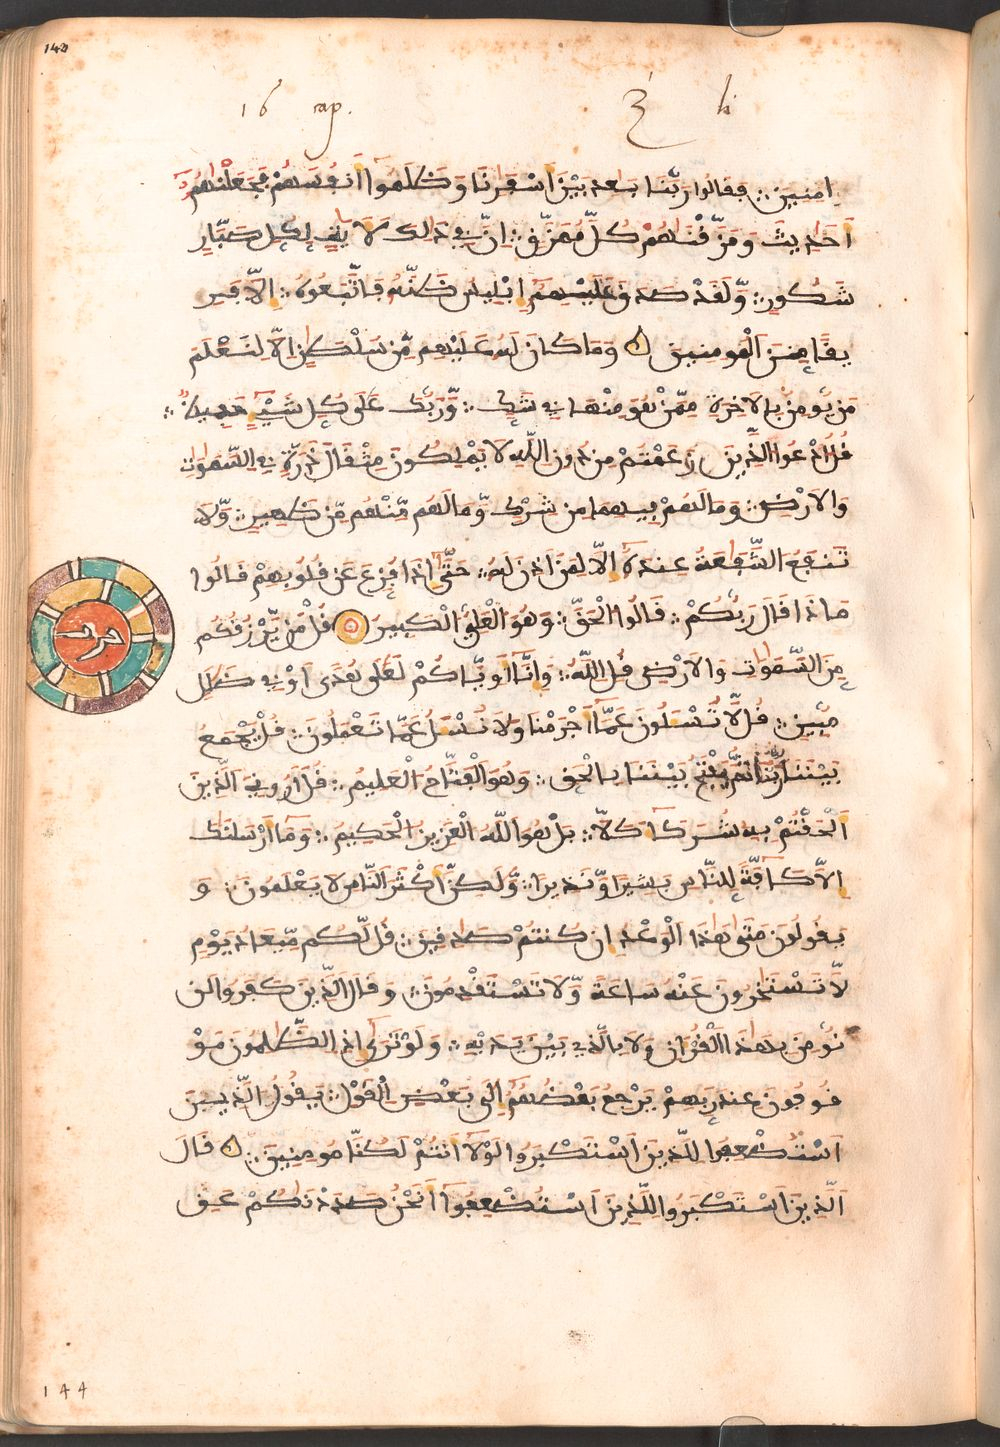 140
16 cap.
امنين ∴ فقالوا ربنا بعد بين اسفرنا وظلموا انفسهم فجعلنهم
احديث ومزقنهم كل ممزق ∴ ان في ذلك لايت لكل صبار
شكور ∴ ولقد صدق عليهم ابليس ظنه فاتبعوه ∴ الا فر
يقا من المومنين وما كان له عليهم من سلطن الا لنعلم
من يومن بالاخرة ممن هو منها في شك ∴ وربك على كل شيء حفيظ ∴
قل ادعوا الذين زعمتم من دون الله لا يملكون مثقال ذرة في السموت
والارض ∴ وما لهم فيهما من شرك وما لهم منهم من ظهير ∴ ولا
تنفع الشفعة عنده الا لمن اذن له ∴ حتى اذا فزع عن قلوبهم قالوا
ماذا قال ربكم ∴ قالوا الحق ∴ وهو العلي الكبير قل من يرزقكم
حزب
من السموت والارض قل الله ∴ وانا او اياكم لعلى هدى او في ضلل
مبين ∴ قل لا تسلون عما اجرمنا ولا نسل عما تعملون ∴ قل يجمع
بيننا ربنا ثم يفتح بيننا بالحق ∴ وهو الفتاح العليم ∴ قل اروني الذين
الحقتم به شركا كلا ∴ بل هو الله العزيز الحكيم ∴ وما ارسلنك
الا كافة للناس بشيرا ونذيرا ∴ ولكن اكثر الناس لا يعلمون ∴ و
يقولون متى هذا الوعد ان كنتم صدقين ∴ قل لكم ميعاد يوم
لا تستخرون عنه ساعة ولا تستقدمون ∴ وقال الذين كفروا لن
نومن بهذا القران ولا بالذي بين يديه ∴ ولو ترى اذ الظلمون مو
قوفون عند ربهم يرجع بعضهم الى بعض القول ∴ يقول الذين
استضعفوا للذين استكبروا لولا انتم لكنا مومنين ∴ قال
الذين استكبروا للذين استضعفوا انحن صددنكم عن
144